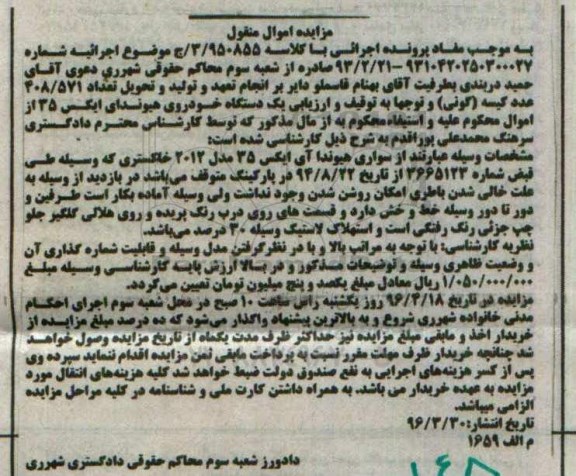 مزایده اموال منقول
به موجب مفاد پرونده اجرائی با کلاسه ۳/۹۵۰۸۵۵/ج موضوع اجرائیه شماره
۹۳۱۰۴۲۰۲۵۰۳۰۰۰۲۷ -۹۳/۲/۲۱ صادره از شعبه سوم محاکم حقوقی شهرری دعوی آقای
حمید دربندی بطرفیت آقای بهنام قاسملو دایر بر انجام تعهد و تولید و تحویل تعداد ۴۰۸/۵۷۱
عدد کیسه (گونی) و توجها به توقیف و ارزیابی یک دستگاه خودروی هیوندای ایکس ۳۵ از
اموال محکوم علیه و استیفاءمحکوم به از مال مذکور که توسط کارشناس محترم دادگستری
سرهنگ محمدعلی پوراقدم به شرح ذیل کارشناسی شده است:
مشخصات وسیله عبارتند از سواری هیوندا آی ایکس ۳۵ مدل ۲۰۱۲ خاکستری که وسیله طی
قبض شماره ۳۶۶۵۱۲۳ از تاریخ ۹۴/۸/۲۲ در پارکینگ متوقف می‌باشد در بازدید از وسیله به
علت خالی شدن باطری امکان روشن شدن وجود نداشت ولی وسیله آماده بکار است طرفین و
دور تا دور وسیله خط و خش دارد و قسمت های روی درب رنگ پریده و روی هلالی گلگیر جلو
چپ جزئی رنگ رفتگی است و استهلاک لاستیک وسیله ۳۰ درصد می‌باشد.
نظریه کارشناسی: با توجه به مراتب بالا و با در نظرگرفتن مدل وسیله و قابلیت شماره گذاری آن
و وضعیت ظاهری وسیله و توضیحات مذکور و در بالا ارزش پایه کارشناسی وسیله مبلغ
۱/۰۵۰/۰۰۰/۰۰۰ ریال معادل مبلغ یکصد و پنج میلیون تومان تعیین می‌گردد.
مزایده در تاریخ ۹۶/۴/۱۸ روز یکشنبه راس ساعت ۱۰ صبح در محل شعبه سوم اجرای احکام
مدنی خانواده شهرری شروع و به بالاترین پیشنهاد واگذار می‌شود که ده درصد مبلغ مزایده از
خریدار اخذ و مابقی مبلغ مزایده نیز حداکثر ظرف مدت یکماه از تاریخ مزایده وصول خواهد
شد چنانچه خریدار ظرف مهلت مقرر نسبت به پرداخت مابقی ثمن مزایده اقدام ننماید سپرده وی
پس از کسر هزینه‌های اجرایی به نفع صندوق دولت ضبط خواهد شد کلیه هزینه‌های انتقال مورد
مزایده به عهده خریدار می باشد. به همراه داشتن کارت ملی و شناسنامه در کلیه مراحل مزایده
الزامی میباشد.
تاریخ انتشار: ۹۶/۳/۳۰
م الف ۱۶۵۹
دادورز شعبه سوم محاکم حقوقی دادگستری شهرری